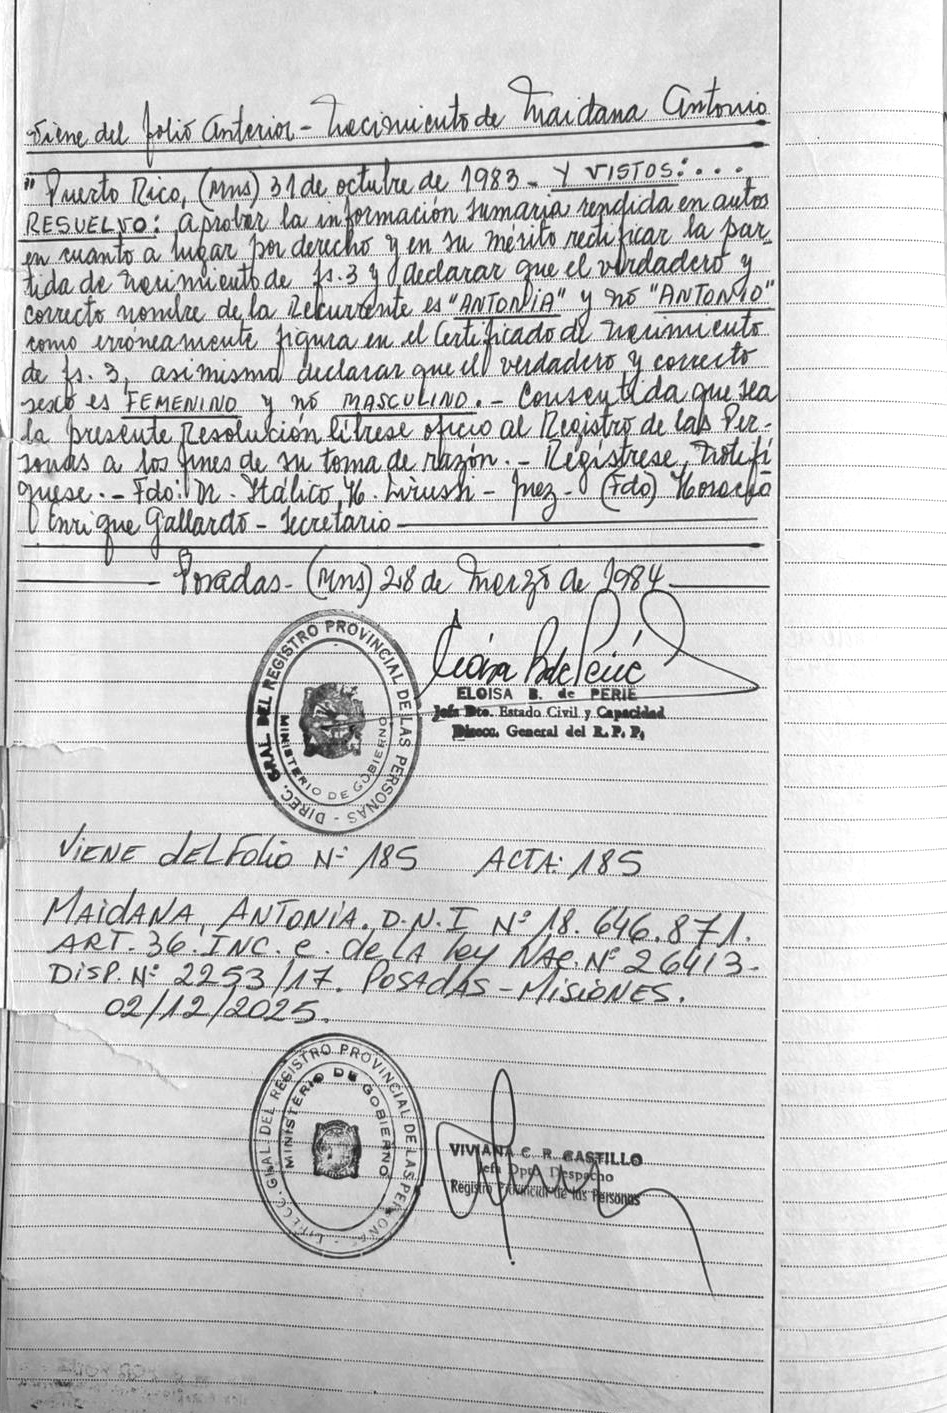 Viene del folio Anterior - Nacimiento de Maidana Antonio
"Puerto Rico, (Mns) 31 de octubre de 1983 - Y VISTOS: . . . .
RESUELVO: aprobar la información sumaria rendida en autos
en cuanto a lugar por derecho y en su mérito rectificar la par-
tida de nacimiento de fs. 3 y declarar que el verdadero y
correcto nombre de la Recurrente es "ANTONIA" y no "ANTONIO"
como erróneamente figura en el Certificado de nacimiento
de fs. 3, asimismo declarar que el verdadero y correcto
sexo es FEMENINO y no MASCULINO. - Consentida que sea
la presente Resolución líbrese oficio al Registro de las Per-
sonas a los fines de su toma de razón. - Regístrese, Notifí
quese. - Fdo: Dr. Itálico H. Lirussi - Juez - (Fdo) Horacio
Enrique Gallardo - Secretario
Posadas - (Mns) 28 de Marzo de 1984
DIREC. GRAL. DEL REGISTRO PROVINCIAL DE LAS PERSONAS -
MINISTERIO DE GOBIERNO
ELOISA B. de PERIE
Jefa Dto. Estado Civil y Capacidad
Direcc. General del R. P. P.
VIENE del Folio Nº 185 ACTA: 185
MAIDANA, ANTONIA. D.N.I Nº 18.646.871.
ART. 36. INC. e. de LA ley NAC. Nº 26413-
DISP. Nº 2253/17. POSADAS - MISIONES.
02/12/2025.
GRAL. DEL REGISTRO PROVINCIAL DE LAS PERSONA
MINISTERIO DE GOBIERNO
VIVIANA C. R. CASTILLO
Jefa Dpto. Despacho
Registro Provincial de las Personas